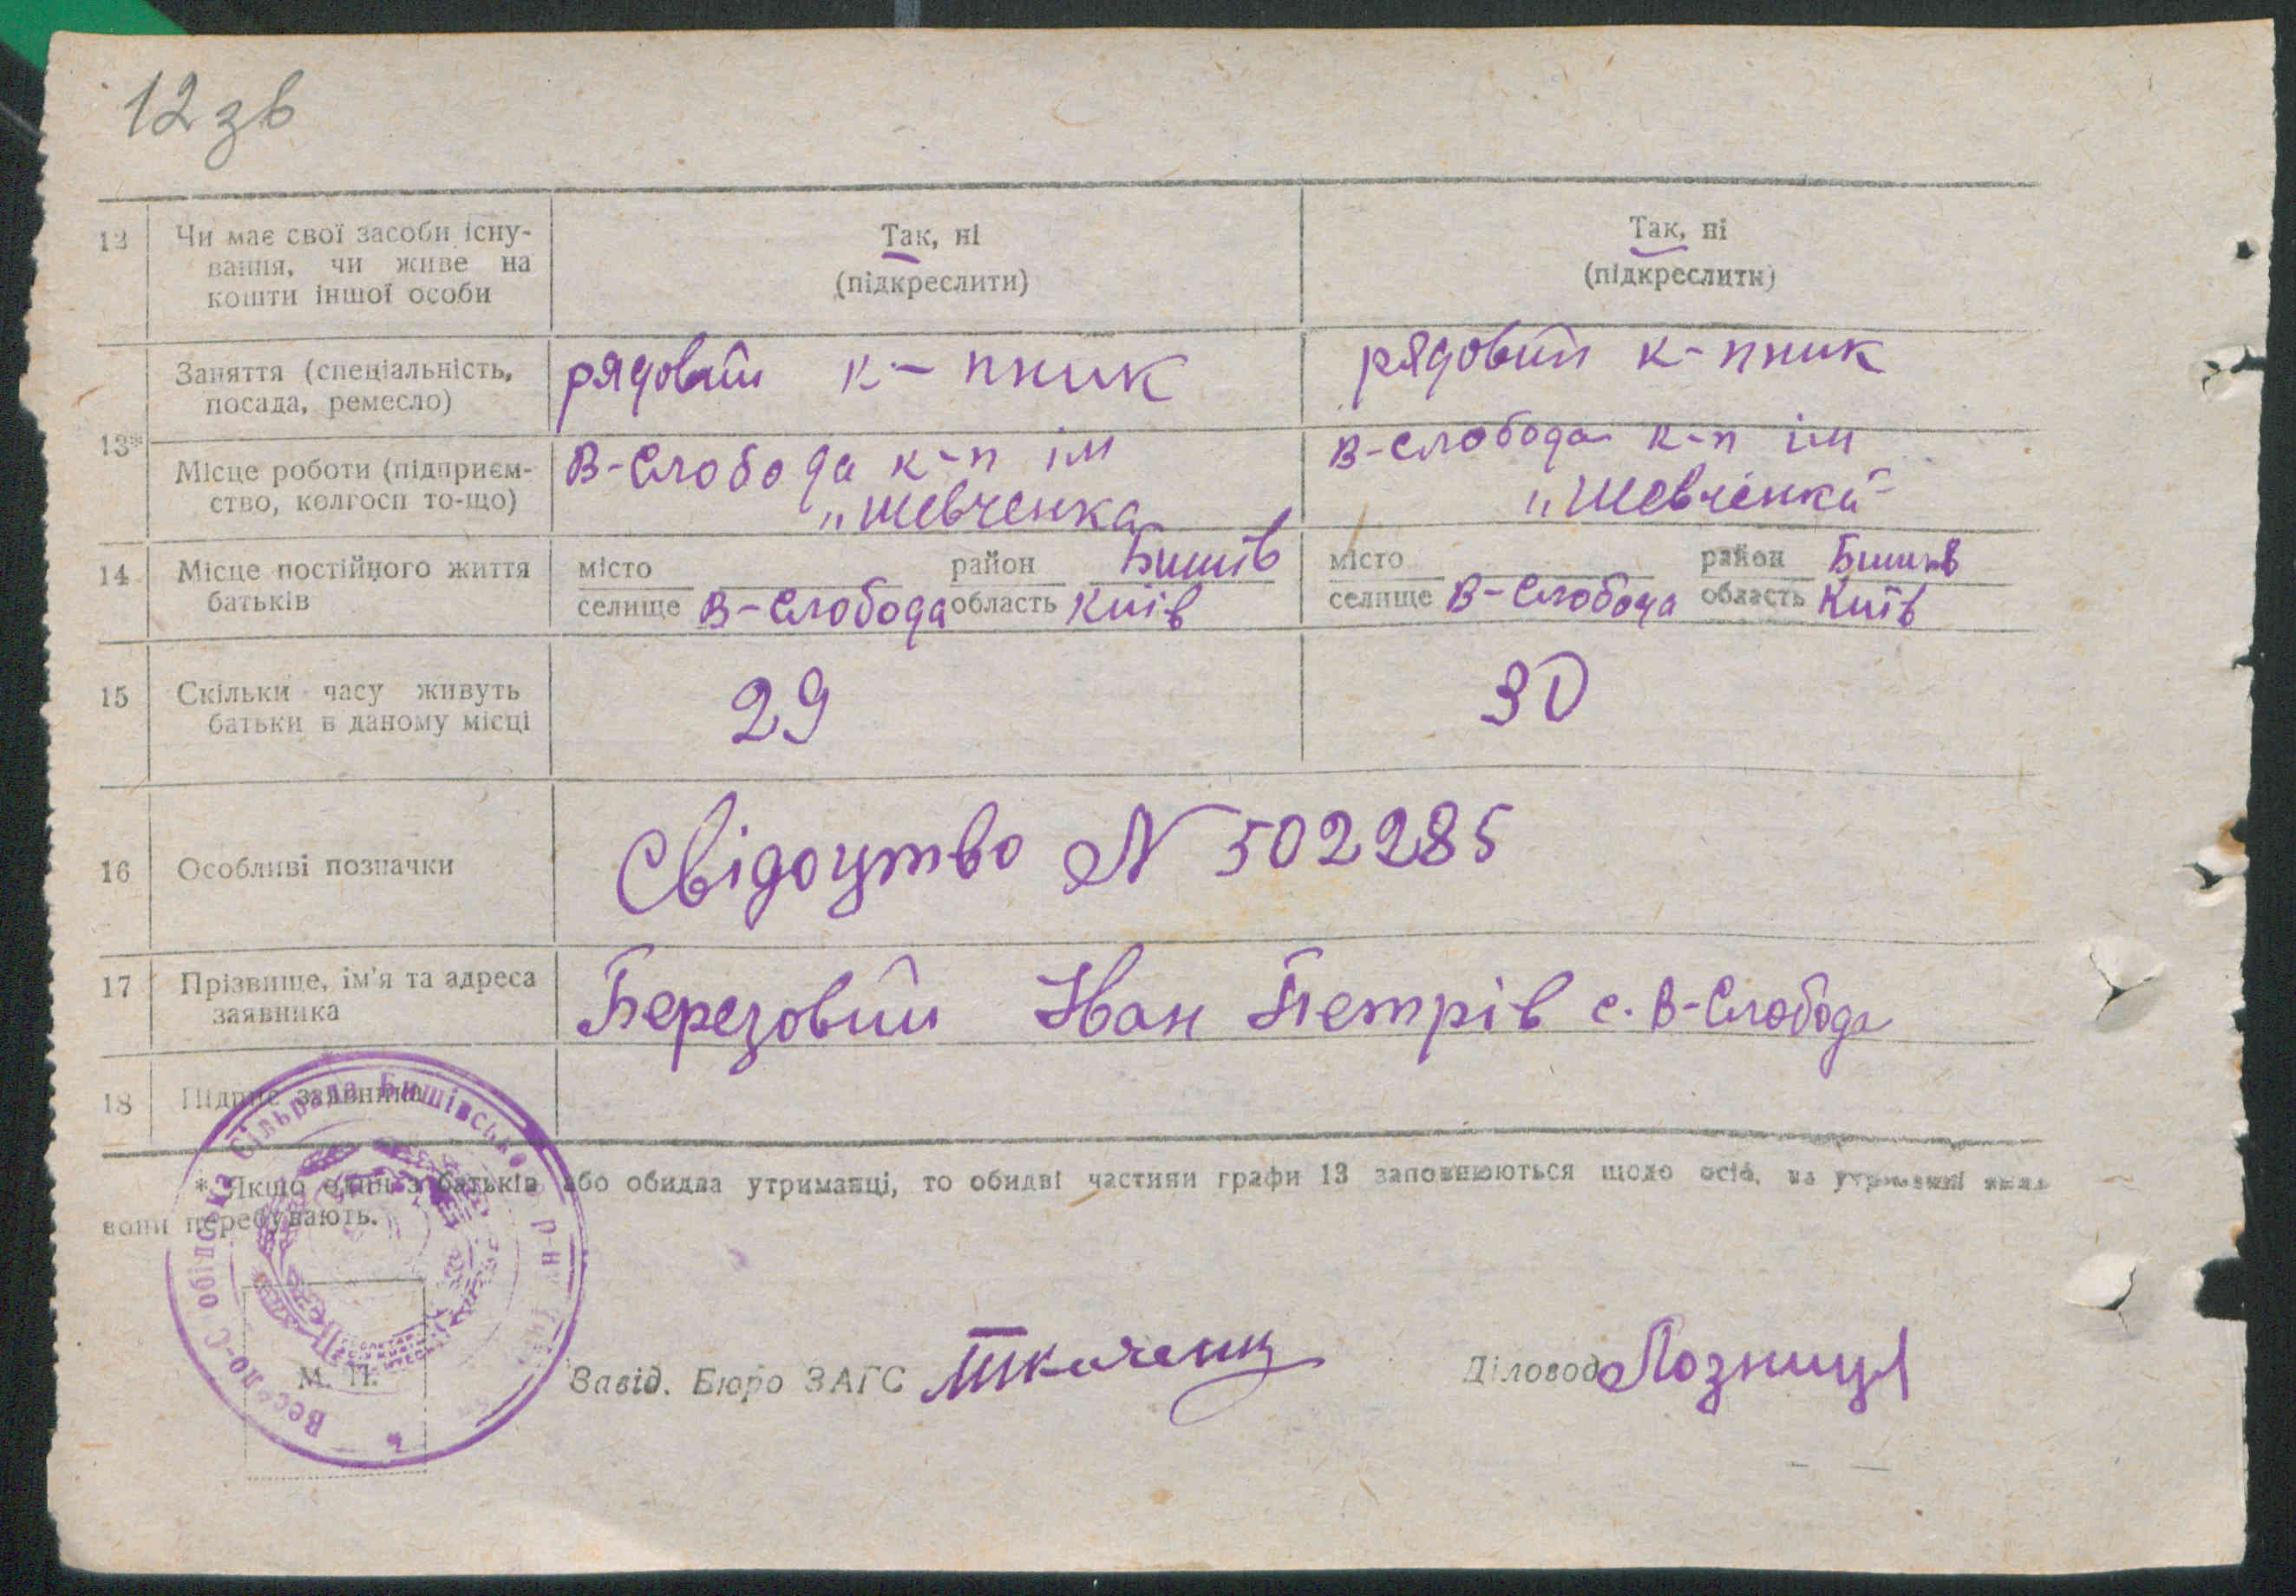 12зв
12 Чи має свої засоби існу- Так, ні Так, ні
вання, чи живе на (підкреслити) (підкреслити)
кошти іншої особи
Заняття (спеціальність, рядовий к-пник рядовий к-пник
посада, ремесло)
13*
Місце роботи (підприєм- В-Слобода к-п ім В-Слобода к-п ім
ство, колгосп то-що) „Шевченка „Шевченка"
14 Місце постійного життя місто район Бишів місто район Бишів
батьків селище В-Слобода область Київ селище В-Слобода область Київ
15 Скільки часу живуть 29 30
батьки в даному місці
16 Особливі позначки Свідоцтво N 502285
17 Прізвище, ім'я та адреса Березовий Іван Петрів с. В-Слобода
заявника
18 Підпис заявника
* Якщо один з батьків або обидва утриманці, то обидві частини графи 13 заповнюються щодо осіб, на утриманні яких
вони перебувають.
Сільрада Бишівсько р-ну
М. П.
Завід. Бюро ЗАГС Ткаченко Діловод Лозниця